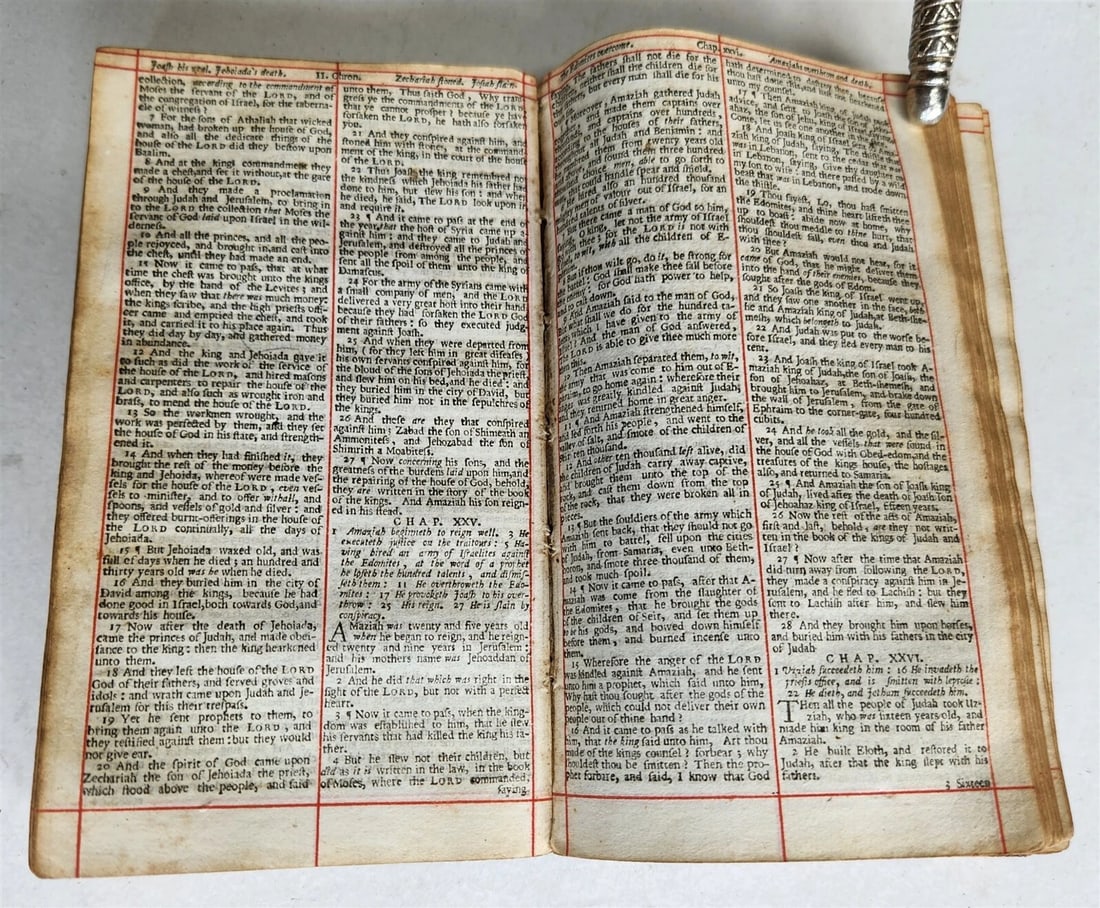 Joaſh his zeal. Jehoiada's death. II. Chron. Zechariah ſtoned. Joſiah ſlain.
collection, according to the commandment of
Moſes the ſervant of the LORD, and of
the congregation of Iſrael, for the taberna-
cle of witneſs?
7 For the ſons of Athaliah that wicked
woman, had broken up the houſe of God,
and alſo all the dedicate things of the
houſe of the LORD did they beſtow upon
Baalim.
8 And at the kings commandment they
made a cheſt, and ſet it without, at the gate
of the houſe of the LORD.
9 And they made a proclamation
through Judah and Jeruſalem, to bring in
to the LORD the collection that Moſes the
ſervant of God laid upon Iſrael in the wil-
derneſs.
10 And all the princes, and all the peo-
ple rejoyced, and brought in, and caſt into
the cheſt, until they had made an end.
11 Now it came to paſs, that at what
time the cheſt was brought unto the kings
office, by the hand of the Levites; and
when they ſaw that there was much money:
the kings ſcribe, and the high prieſts offi-
cer came and emptied the cheſt, and took
it, and carried it to his place again. Thus
they did day by day, and gathered money
in abundance.
12 And the king and Jehoiada gave it
to ſuch as did the work of the ſervice of
the houſe of the LORD, and hired maſons
and carpenters to repair the houſe of the
LORD, and alſo ſuch as wrought iron and
braſs, to mend the houſe of the LORD.
13 So the workmen wrought, and the
work was perfected by them, and they ſet
the houſe of God in his ſtate, and ſtrength-
ened it.
14 And when they had finiſhed it, they
brought the reſt of the money before the
king and Jehoiada, whereof were made veſ-
ſels for the houſe of the LORD, even veſ-
ſels to miniſter, and to offer withall, and
ſpoons, and veſſels of gold and ſilver: and
they offered burnt-offerings in the houſe of
the LORD continually, all the days of
Jehoiada.
15 ¶ But Jehoiada waxed old, and was
full of days when he died; an hundred and
thirty years old was he when he died.
16 And they buried him in the city of
David among the kings, becauſe he had
done good in Iſrael, both towards God, and
towards his houſe.
17 Now after the death of Jehoiada,
came the princes of Judah, and made obei-
ſance to the king: then the king hearkened
unto them.
18 And they left the houſe of the LORD
God of their fathers, and ſerved groves and
idols: and wrath came upon Judah and Je-
ruſalem for this their treſpaſs.
19 Yet he ſent prophets to them, to
bring them again unto the LORD, and
they teſtified againſt them: but they would
not give ear.
20 And the ſpirit of God came upon
Zechariah the ſon of Jehoiada the prieſt,
which ſtood above the people, and ſaid
unto them, Thus ſaith God, Why tranſ-
greſs ye the commandments of the LORD,
that ye cannot proſper? becauſe ye have
forſaken the LORD, he hath alſo forſaken
you.
21 And they conſpired againſt him, and
ſtoned him with ſtones, at the command-
ment of the king, in the court of the houſe
of the LORD.
22 Thus Joaſh the king remembred not
the kindneſs which Jehoiada his father had
done to him, but ſlew his ſon: and when
he died, he ſaid, The LORD look upon it,
and require it.
23 ¶ And it came to paſs at the end of
the year, that the hoſt of Syria came up a-
gainſt him: and they came to Judah and
Jeruſalem, and deſtroyed all the princes of
the people from among the people, and
ſent all the ſpoil of them unto the king of
Damaſcus.
24 For the army of the Syrians came with
a ſmall company of men, and the LORD
delivered a very great hoſt into their hand,
becauſe they had forſaken the LORD God
of their fathers: ſo they executed judg-
ment againſt Joaſh.
25 And when they were departed from
him, (for they left him in great diſeaſes)
his own ſervants conſpired againſt him, for
the bloud of the ſons of Jehoiada the prieſt,
and ſlew him on his bed, and he died: and
they buried him in the city of David, but
they buried him not in the ſepulchres of
the kings.
26 And theſe are they that conſpired
againſt him; Zabad the ſon of Shimeath an
Ammoniteſs, and Jehozabad the ſon of
Shimrith a Moabiteſs.
27 ¶ Now concerning his ſons, and the
greatneſs of the burdens laid upon him, and
the repairing of the houſe of God, behold,
they are written in the ſtory of the book
of the kings. And Amaziah his ſon reign-
ed in his ſtead.
CHAP. XXV.
1 Amaziah beginneth to reign well. 3 He
executeth juſtice on the traitours: 5 Ha-
ving hired an army of Iſraelites againſt
the Edomites, at the word of a prophet
he loſeth the hundred talents, and diſmiſ-
ſeth them: 11 He overthroweth the Edo-
mites: 17 He provoketh Joaſh to his over-
throw: 25 His reign. 27 He is ſlain by
conſpiracy.
AMaziah was twenty and five years old
when he began to reign, and he reign-
ed twenty and nine years in Jeruſalem:
and his mothers name was Jehoaddan of
Jeruſalem.
2 And he did that which was right in the
ſight of the LORD, but not with a perfect
heart.
3 ¶ Now it came to paſs, when the king-
dom was eſtabliſhed to him, that he ſlew
his ſervants that had killed the king his fa-
ther.
4 But he ſlew not their children, but
did as it is written in the law, in the book
of Moſes, where the LORD commanded,
ſaying,
the Edomites overcome. Chap. xxvi. Amaziahs overthrow and death.
The fathers ſhall not die for the
children, neither ſhall the children die for
the fathers, but every man ſhall die for his
5 ¶ Moreover, Amaziah gathered Judah
together, and made them captains over
thouſands, and captains over hundreds,
according to the houſes of their fathers,
throughout all Judah and Benjamin: and
he numbred them from twenty years old
and above, and found them three hundred
thouſand choice men, able to go forth to
war, that could handle ſpear and ſhield.
6 He hired alſo an hundred thouſand
mighty men of valour out of Iſrael, for an
hundred talents of ſilver.
7 But there came a man of God to him,
ſaying, O king, let not the army of Iſrael
go with thee; for the LORD is not with
Iſrael, to wit, with all the children of E-
8 But if thou wilt go, do it, be ſtrong for
the battel: God ſhall make thee fall before
the enemy: for God hath power to help,
and to caſt down.
9 And Amaziah ſaid to the man of God,
But what ſhall we do for the hundred ta-
lents which I have given to the army of
Iſrael? And the man of God anſwered,
The LORD is able to give thee much more
than this.
10 Then Amaziah ſeparated them, to wit,
the army that was come to him out of E-
phraim, to go home again: wherefore their
anger was greatly kindled againſt Judah,
and they returned home in great anger.
11 ¶ And Amaziah ſtrengthened himſelf,
and led forth his people, and went to the
valley of ſalt, and ſmote of the children of
Seir ten thouſand.
12 And other ten thouſand left alive, did
the children of Judah carry away captive,
and brought them unto the top of the
rock, and caſt them down from the top
of the rock, that they were broken all in
pieces.
13 ¶ But the ſouldiers of the army which
Amaziah ſent back, that they ſhould not go
with him to battel, fell upon the cities
of Judah, from Samaria, even unto Beth-
horon, and ſmote three thouſand of them,
and took much ſpoil.
14 ¶ Now it came to paſs, after that A-
maziah was come from the ſlaughter of
the Edomites, that he brought the gods
of the children of Seir, and ſet them up
to be his gods, and bowed himſelf down
before them, and burned incenſe unto
them.
15 Wherefore the anger of the LORD
was kindled againſt Amaziah, and he ſent
unto him a prophet, which ſaid unto him,
Why haſt thou ſought after the gods of the
people, which could not deliver their own
people out of thine hand?
16 And it came to paſs as he talked with
him, that the king ſaid unto him, Art thou
made of the kings counſel? forbear; why
ſhouldeſt thou be ſmitten? Then the pro-
phet forbare, and ſaid, I know that God
hath determined to deſtroy thee, becauſe
thou haſt done this, and haſt not hearkened
unto my counſel.
17 ¶ Then Amaziah king of Judah took
advice, and ſent to Joaſh the ſon of Jeho-
ahaz, the ſon of Jehu king of Iſrael, ſaying,
Come, let us ſee one another in the face.
18 And Joaſh king of Iſrael ſent to Ama-
ziah king of Judah, ſaying, The thiſtle that
was in Lebanon, ſent to the cedar that was
in Lebanon, ſaying, Give thy daughter to
my ſon to wife: and there paſſed by a wild
beaſt that was in Lebanon, and trode down
the thiſtle.
19 Thou ſayeſt, Lo, thou haſt ſmitten
the Edomites, and thine heart lifteth thee
up to boaſt: abide now at home, why
ſhouldeſt thou meddle to thine hurt, that
thou ſhouldeſt fall, even thou and Judah
with thee?
20 But Amaziah would not hear, for it
came of God, that he might deliver them
into the hand of their enemies, becauſe they
ſought after the gods of Edom.
21 So Joaſh the king of Iſrael went up,
and they ſaw one another in the face, both
he and Amaziah king of Judah, at Beth-ſhe-
meſh, which belongeth to Judah.
22 And Judah was put to the worſe be-
fore Iſrael, and they fled every man to his
tent.
23 And Joaſh the king of Iſrael took A-
maziah king of Judah, the ſon of Joaſh, the
ſon of Jehoahaz, at Beth-ſhemeſh, and
brought him to Jeruſalem, and brake down
the wall of Jeruſalem, from the gate of
Ephraim to the corner-gate, four hundred
cubits.
24 And he took all the gold, and the ſil-
ver, and all the veſſels that were found in
the houſe of God with Obed-edom, and the
treaſures of the kings houſe, the hoſtages
alſo, and returned to Samaria.
25 ¶ And Amaziah the ſon of Joaſh king
of Judah, lived after the death of Joaſh ſon
of Jehoahaz king of Iſrael, fifteen years.
26 Now the reſt of the acts of Amaziah,
firſt and laſt, behold, are they not writ-
ten in the book of the kings of Judah and
Iſrael?
27 ¶ Now after the time that Amaziah
did turn away from following the LORD,
they made a conſpiracy againſt him in Je-
ruſalem, and he fled to Lachiſh: but they
ſent to Lachiſh after him, and ſlew him
there.
28 And they brought him upon horſes,
and buried him with his fathers in the city
of Judah
CHAP. XXVI.
1 Uzziah ſucceedeth him: 16 He invadeth the
prieſts office, and is ſmitten with leproſie:
22 He dieth, and Jotham ſucceedeth him.
THen all the people of Judah took Uz-
ziah, who was ſixteen years old, and
made him king in the room of his father
Amaziah.
2 He built Eloth, and reſtored it to
Judah, after that the king ſlept with his
fathers.
3 Sixteen